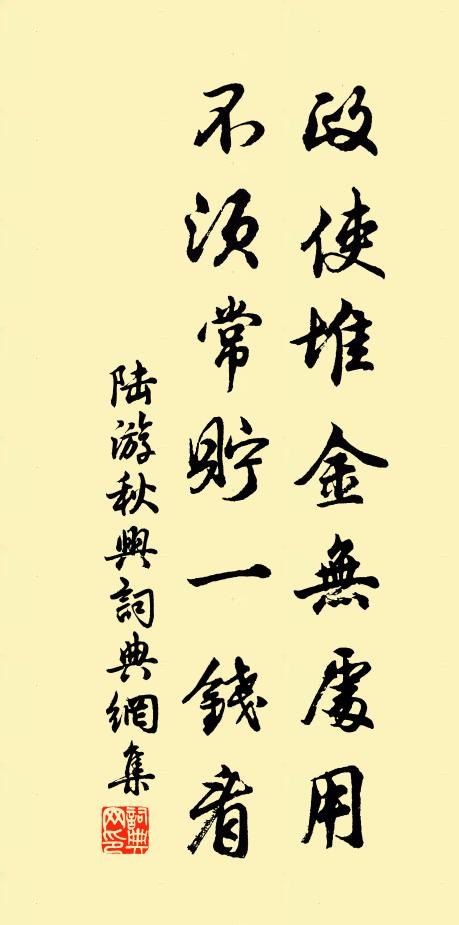 政使堆金無處用
不須常貯一錢看
陆游秋興詞典網集
詞典網印